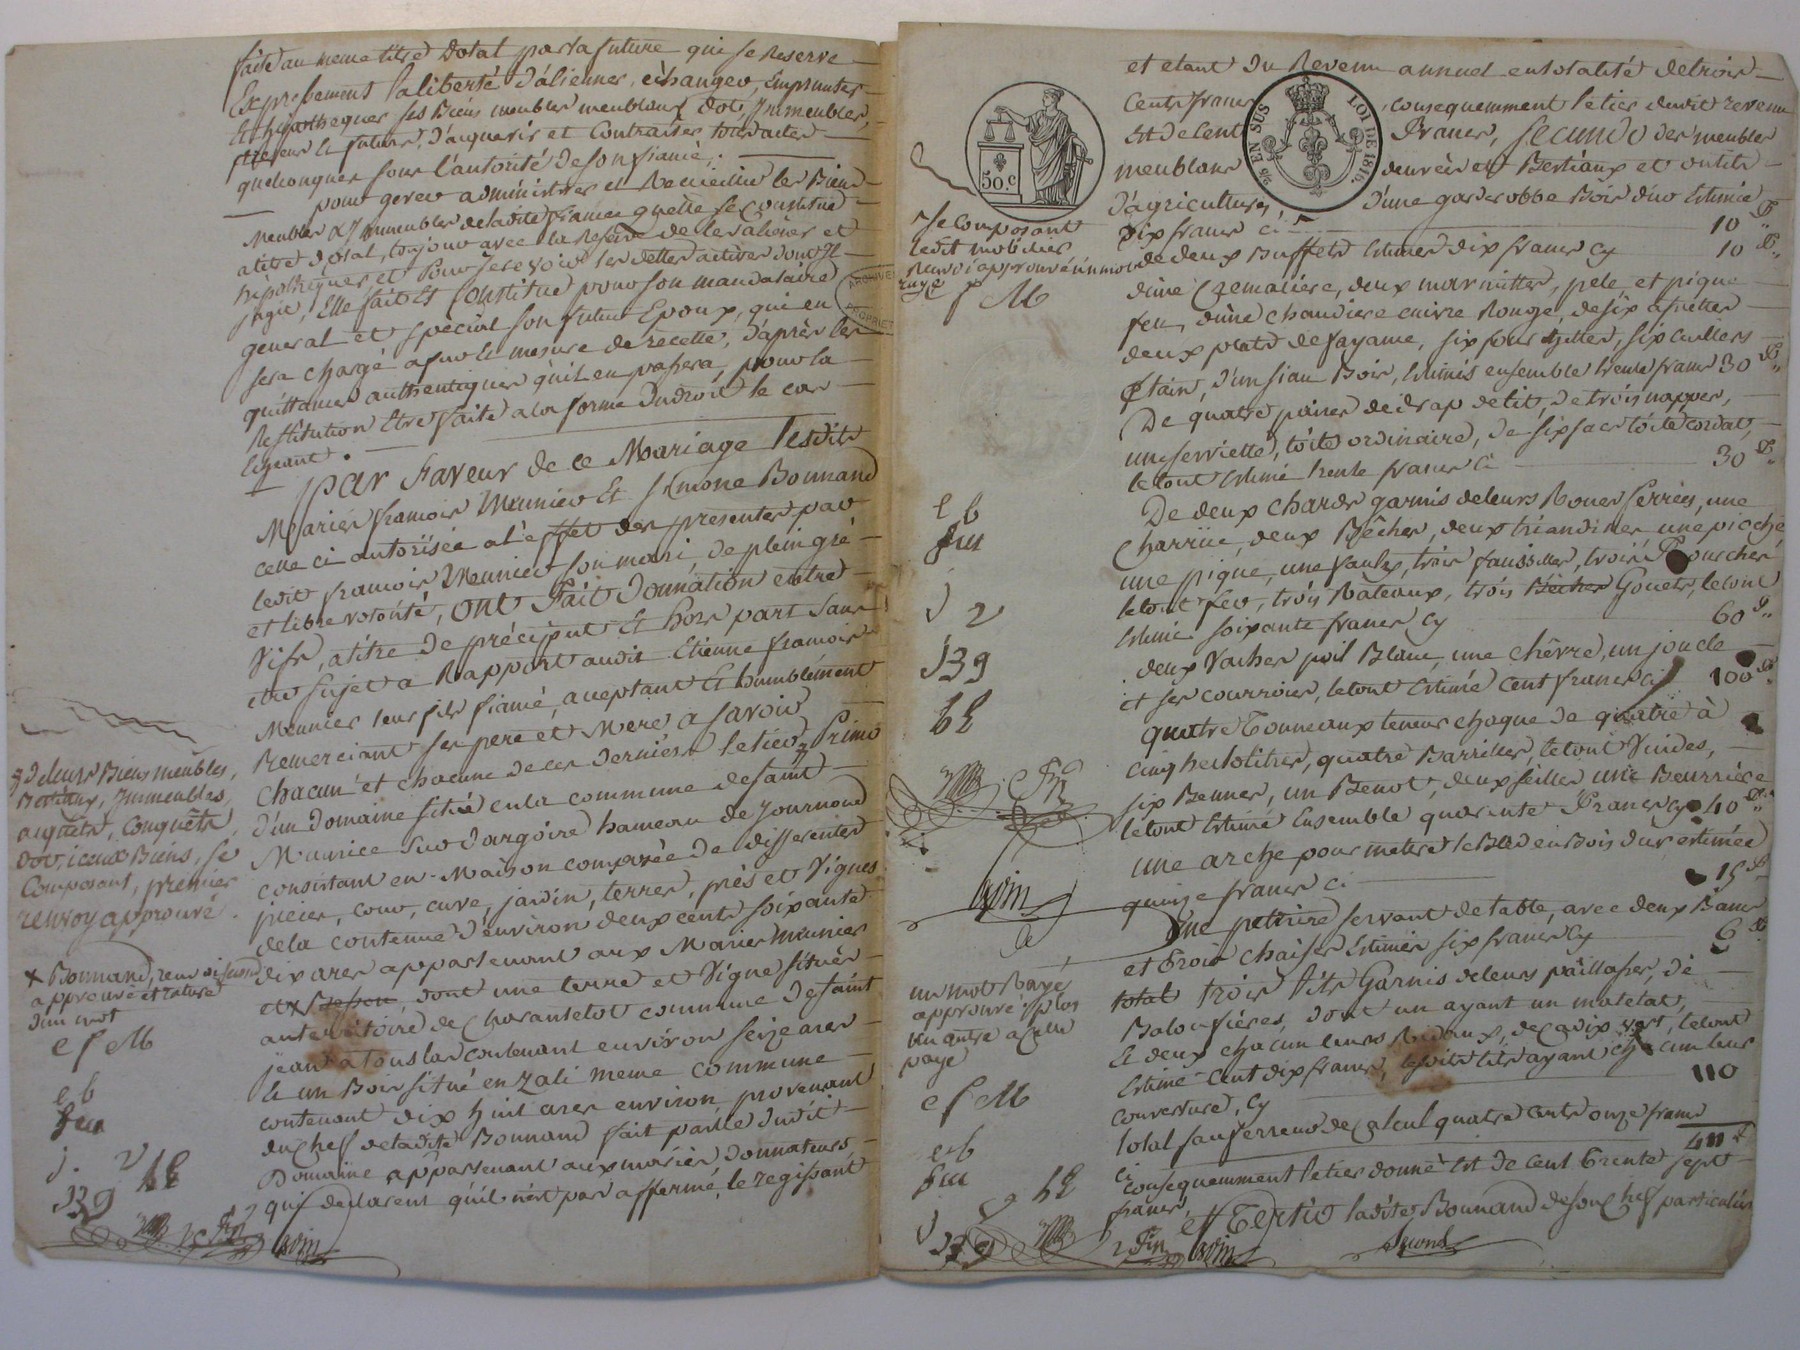 faite au meme titre Dotal par la future qui se Reserve
Expressement la liberté d'aliener, échanger, Emprunter
Et hypothequer ses Biens meubles meublaux dot, Immeubles,
presens et futurs, d'acquerir et Contracter tous actes
quelconques sous l'autorité de son fiancé.
pour gerer administrer et Recueillir les Biens
Meubles & Immeubles de ladite fiancée qu'elle se Constitue
a titre dotal, toujours avec la Reserve de les aliener et
hypothequer, et pour recevoir les dettes actives dont Il
s'agit, Elle fait et Constitue pour son mandataire
general et special son futur Epoux, qui en
sera chargé a fur et mesure de recette, d'après les
quittances authentiques qu'il en passera, pour la
Restitution Etre faite a la forme du droit le cas
Exigeant.
Par Faveur de ce Mariage Lesdits
Mariés françois Meunier Et Simone Bonnand
celle ci autorisée a l'effet des presentes par
ledit françois Meunier son mari, de plein gré
et libre volonté, ont fait Donnation entre
vifs, a titre de préciput Et hors part sans
etre sujet a Rapport audit Etienne françois
Meunier leur fils fiancé, acceptant Et humblement
Remerciant ses pere et Mere a savoir
chacun et chacune de ces derniers le tiers Primo
d'un domaine situé en la commune de saint
Maurice sur dargoire hameau de Journoud
consistant en Maison composée de differentes
pieces, cour, cuve, jardin, terres, près et Vignes
de la contenue d'environ deux cents soixante
dix ares appartenant aux Mariés meunier
et x dont une terre et Vigne situés
au territoire de Charantelot commune de saint
jean a touslas contenant environ seize ares
Et un Bois situé en Zali meme commune
contenant dix huit ares environ provenant
du chef de ladite Bonnand fait partie dudit
Domaine appartenant aux mariés Donnateurs
qui declarent qu'il n'est pas affermé, le regissant
de leurs Biens meubles,
Bestiaux, Immeubles,
acquets, conquets,
dot, iceux Biens, se
Composant, premier
renvoy approuvé.
x Bonnand, renvoi second
approuvé et rature
d'un mot
e f M
e b
fm
J. 2 b E
J 3 9
ARCHIVES
PROPRIET
et etant du Revenu annuel en totalité de trois
Cents francs consequemment le tiers dudit revenu
Est de Cent francs, secundo des meubles
meublans denrées et Bestiaux et outils
d'agriculture, d'une garderobbe Bois dur Estimée
Dix francs ci 10 f
de deux Buffets Estimés dix francs cy 10 f
d'une Cremaliere, deux marmittes, pele et pique
feu, d'une chaudiere cuivre Rouge, de six assiettes
deux plats de fayance, six fourchettes, six cuillers
Etain, d'un siau Bois, Estimés ensemble trente francs 30 f
De quatre paires de drap de lit, de trois nappes,
une serviette, toile ordinaire, de six sacs toile cordat,
le tout Estimé trente francs ci 30 f
De deux chards garnis de leurs Roues ferrées, une
Charrüe, deux Bêches, deux triandines une pioche
une pique, une faulx, trois faussilles, trois fourches
le tout fer, trois Rateaux, trois Bêches Gouets, le tout
Estimé soixante francs Cy 60 f
deux Vaches poil Blanc, une chêvre, un joucle
et ses courroies, le tout Estimé Cent francs ci 100 f
quatre Tonneaux teneur chaque de quatre à
cinq hectolitres, quatre Barrilles, le tout Vuides,
six Bennes, un Benot, deux seilles, une Beurriere
le tout Estimé Ensemble quarante francs cy 40 f
une arche pour mettre le Bled en Bois dur estimée
quinze francs ci 15 f
Une petrire servant de table, avec deux Bancs
et trois chaises Estimés six francs Cy 6 f
total trois lits Garnis de leurs paillasses, de
Baloufières, dont un ayant un matelat,
Et deux chacun leurs Rideaux, de Cadix vert, le tout
Estimé Cent dix francs, lesdits lits ayant chacun leur
couverture, Cy 110
total sauf erreur de Calcul quatre cents onze francs
ci 411 f
consequemment le tiers donné Est de Cent trente sept
francs,
Et Tertio ladite Bonnand de son Chef particulier
second
50.c
5/10 EN SUS
LOI DE 1816.
se composant
ledit mobilier
Renvoi approuvé un mot
rayé
e f M
e b
fm
J 2
J 3 9
b E
un mot Rayé
approuvé plus
un autre a cette
page
e f M
e b
fm
b E
J 3 9